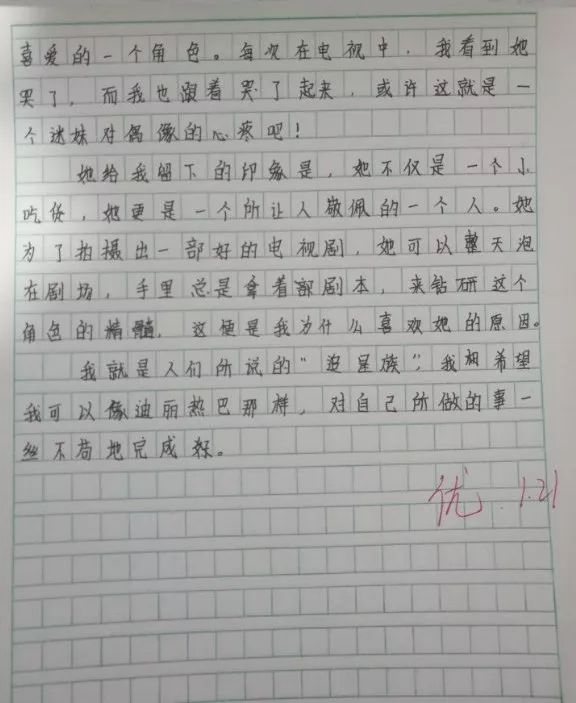 喜爱的一个角色。每次在电视中，我看到她
哭了，而我也跟着哭了起来，或许这就是一
个迷妹对偶像的心疼吧！
她给我留下的印象是，她不仅是一个小
吃货，她更是一个所让人敬佩的一个人。她
为了拍摄出一部好的电视剧，她可以整天泡
在剧场，手里总是拿着部剧本，来钻研这个
角色的精髓，这便是我为什么喜欢她的原因。
我就是人们所说的“追星族”，我相希望
我可以像迪丽热巴那样，对自己所做的事一
丝不苟地完成好。
优 1.21